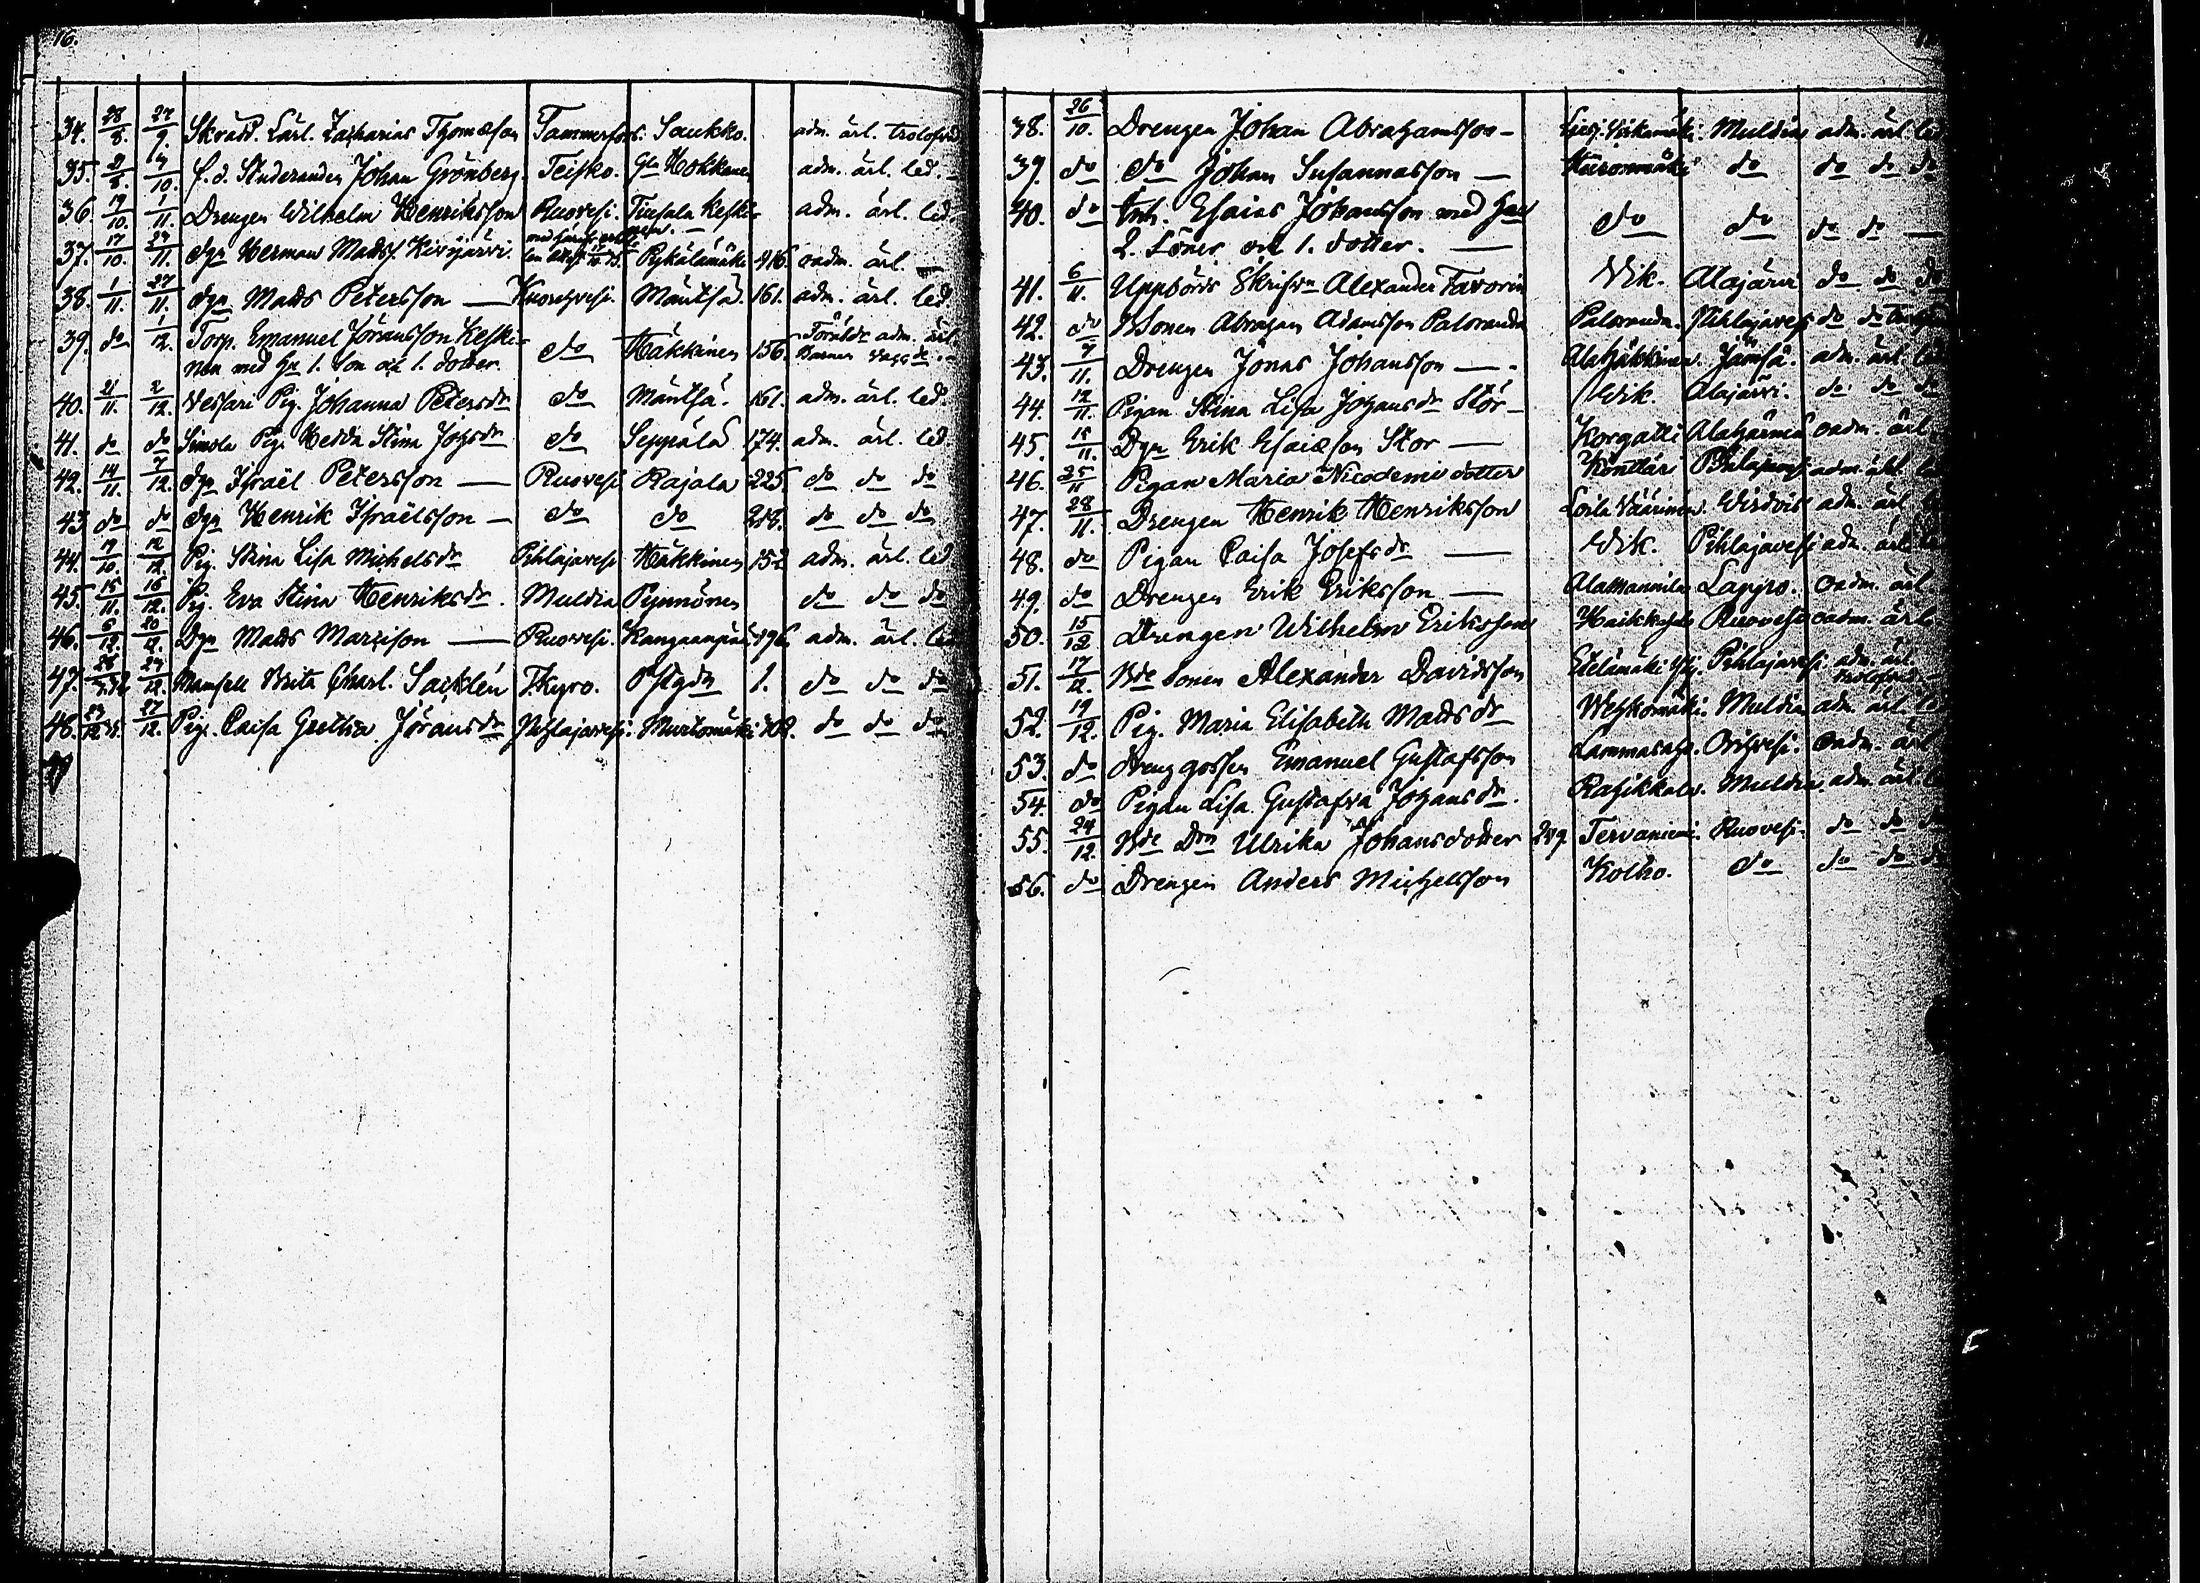 16.
34. 28/8. 27/9. Skrädd. Lärl. Zacharias Thomasson Tammerfors. Saukko. adm. ärl. trolofvad
35. 2/8. 4/10. f. d. Studeranden Johan Grönberg. Teisko. Gla Hokkanen adm. ärl. led.
36. 19/10. 1/11. Drengen Wilhelm Henriksson Ruovesi. Tiusala Keski- adm. ärl. led.
37. 17/10. 24/11. Dgn Herman Madss. Kivijärvi. Pykälämäki 416. oadm. ärl. —
38. 1/11. 27/11. Dgn Matts Petersson — Kuorehvesi. Mäntsä. 161. adm. ärl. led.
39. do 1/12. Torp. Emanuel Jöransson Keski- do Häkkinen 156. Föräldr. adm. ärl.
nen med Hu 1. Son och 1. dotter. Barnen
40. 21/11. 2/12. Vessari Pig. Johanna Petersdr do Mäntsä. 161. adm. ärl. led.
41. do do Simola Pig. Hedda Stina Johsdr do Seppälä 174. adm. ärl. led
42. 14/11. 7/12. Dgn Israël Petersson — Ruovesi Rajala 225. do do do
43 do do Dgn Henrik Israëlsson — do do 218. do do do
44. 19/10. 12/12. Pig. Stina Lisa Michelsdr Pihlajavesi Häkkinen 152 adm. ärl. led
45. 15/11. 16/12. Pig. Eva Stina Henriksdr. Muldia Pynnönen do do do
46. 6/12. 20/12. Dgn Matts Mattsson — Ruovesi. Kangaanpää 196. adm. ärl. led
47. 24/12. Mamsell Brita Charl. Sacklén T.Kyro. 1. do do do
48. 27/12. Pig. Caisa Gretha Jöransdr Pihlajavesi. Murtomäki 102. do do do
38. 26/10. Drengen Johan Abrahamsson — Muldia adm. ärl. led
39. do do Johan Susannasson — Hiironmäki do do do do
40. do Inh. Esaias Johansson med Hu do do do do —
2. Söner och 1. dotter. —
41. 6/11. Uppbörds Skrifvn Alexander Favorin Wik. Alajärvi do do do
42. do BSonen Abraham Adamsson Paloranda Paloranda. Pihlajavesi do do
43. 7/11. Drengen Jonas Johansson — Alahäkkinen. Jämsä. adm. ärl. led
44. 12/11. Pigan Stina Lisa Johansdr Stör — Wik. Alajärvi. do do do
45. 15/11. Dgn Erik Esaiæson Stor — Korgatti Alahärmä oadm. ärl.
46. 25/11 Pigan Maria Nicodemi dotter Könttäri Pihlajavesi adm. ärl. led
47. 28/11. Drengen Henrik Henriksson Loila Väärinen. Wirdois adm. ärl.
48. do Pigan Caisa Josefsdr — Wik. Pihlajavesi adm. ärl. led
49. do Drengen Erik Eriksson — Alamannila Lappo. oadm. ärl
50. 15/12 Drengen Wilhelm Eriksson Ruovesi oadm. ärl
51. 17/12. Bde sonen Alexander Davidsson Etelämäki Pihlajavesi adm. ärl. trolofvad
52. 19/12. Pig. Maria Elisabeth Mattsdr Wehkomäki. Muldia adm. ärl. le
53. do Drenggossen Emanuel Gustafsson Lammasaho. Orihvesi. oadm. ärl
54. do Pigan Lisa Gustafva Johansdr. Rahikkala. Muldia adm. ärl
55. 24/12. Bde Drn Ulrika Johansdotter 249. Tervaniemi. Ruovesi. do do do
56. do Drengen Anders Michelsson Kolho. do do do